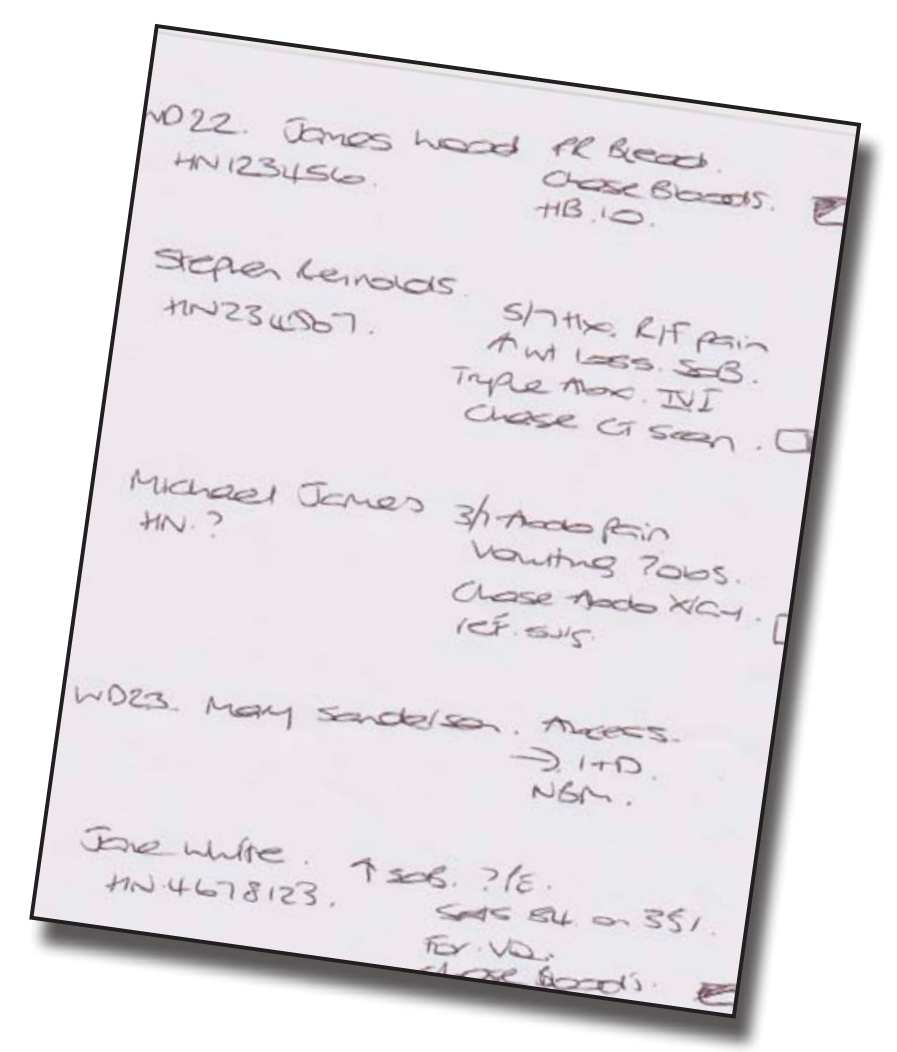 WD22. James Wood PR Bleed.
HN123456. Chase Bloods.
HB 10.
Stephen Reinolds.
HN234567. 5/7 Hx. RIF pain
↑ wt loss. SOB.
Triple IVI
Chase CT scan.
Michael James 3/7 Abdo pain
HN.? Vomiting ?obs.
Chase Abdo X/CT.
ref.
WD23. Mary Sanderson. Abcess.
→ I+D.
NBM.
Jane White. ↑ SOB. ?/E.
HN.4678123. Sats 84. on 35%.
For VQ.
Chase Bloods.